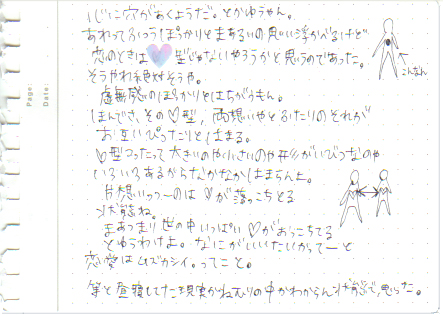 心に穴があくようだ。とかゆうやん。
あれってふつうぽっかりとまあるいの思い浮かべるけど
恋のときは♡型じゃないやろうかと思うのであった。
そうやわ絶対そうや。
虚無感のぽっかりとはちがうもん。
ほんでさ、その♡型、両想いやとふたりのそれが
お互いぴったりとはまる。
♡型つったって大きいのや小さいのや形がいびつなのや
いろいろあるからなかなかはまらんよ。
片想いっつーのは♡が落っこちとる
状態ね。
まあつまり世の中いっぱい♡がおっこちてる
とゆうわけよ。なにがいいたいかってーと
恋愛はムズカシイ。ってこと。
等と昼寝してた現実かねむりの中かわからん状態で、思った。
こんなん
Page:
Date: